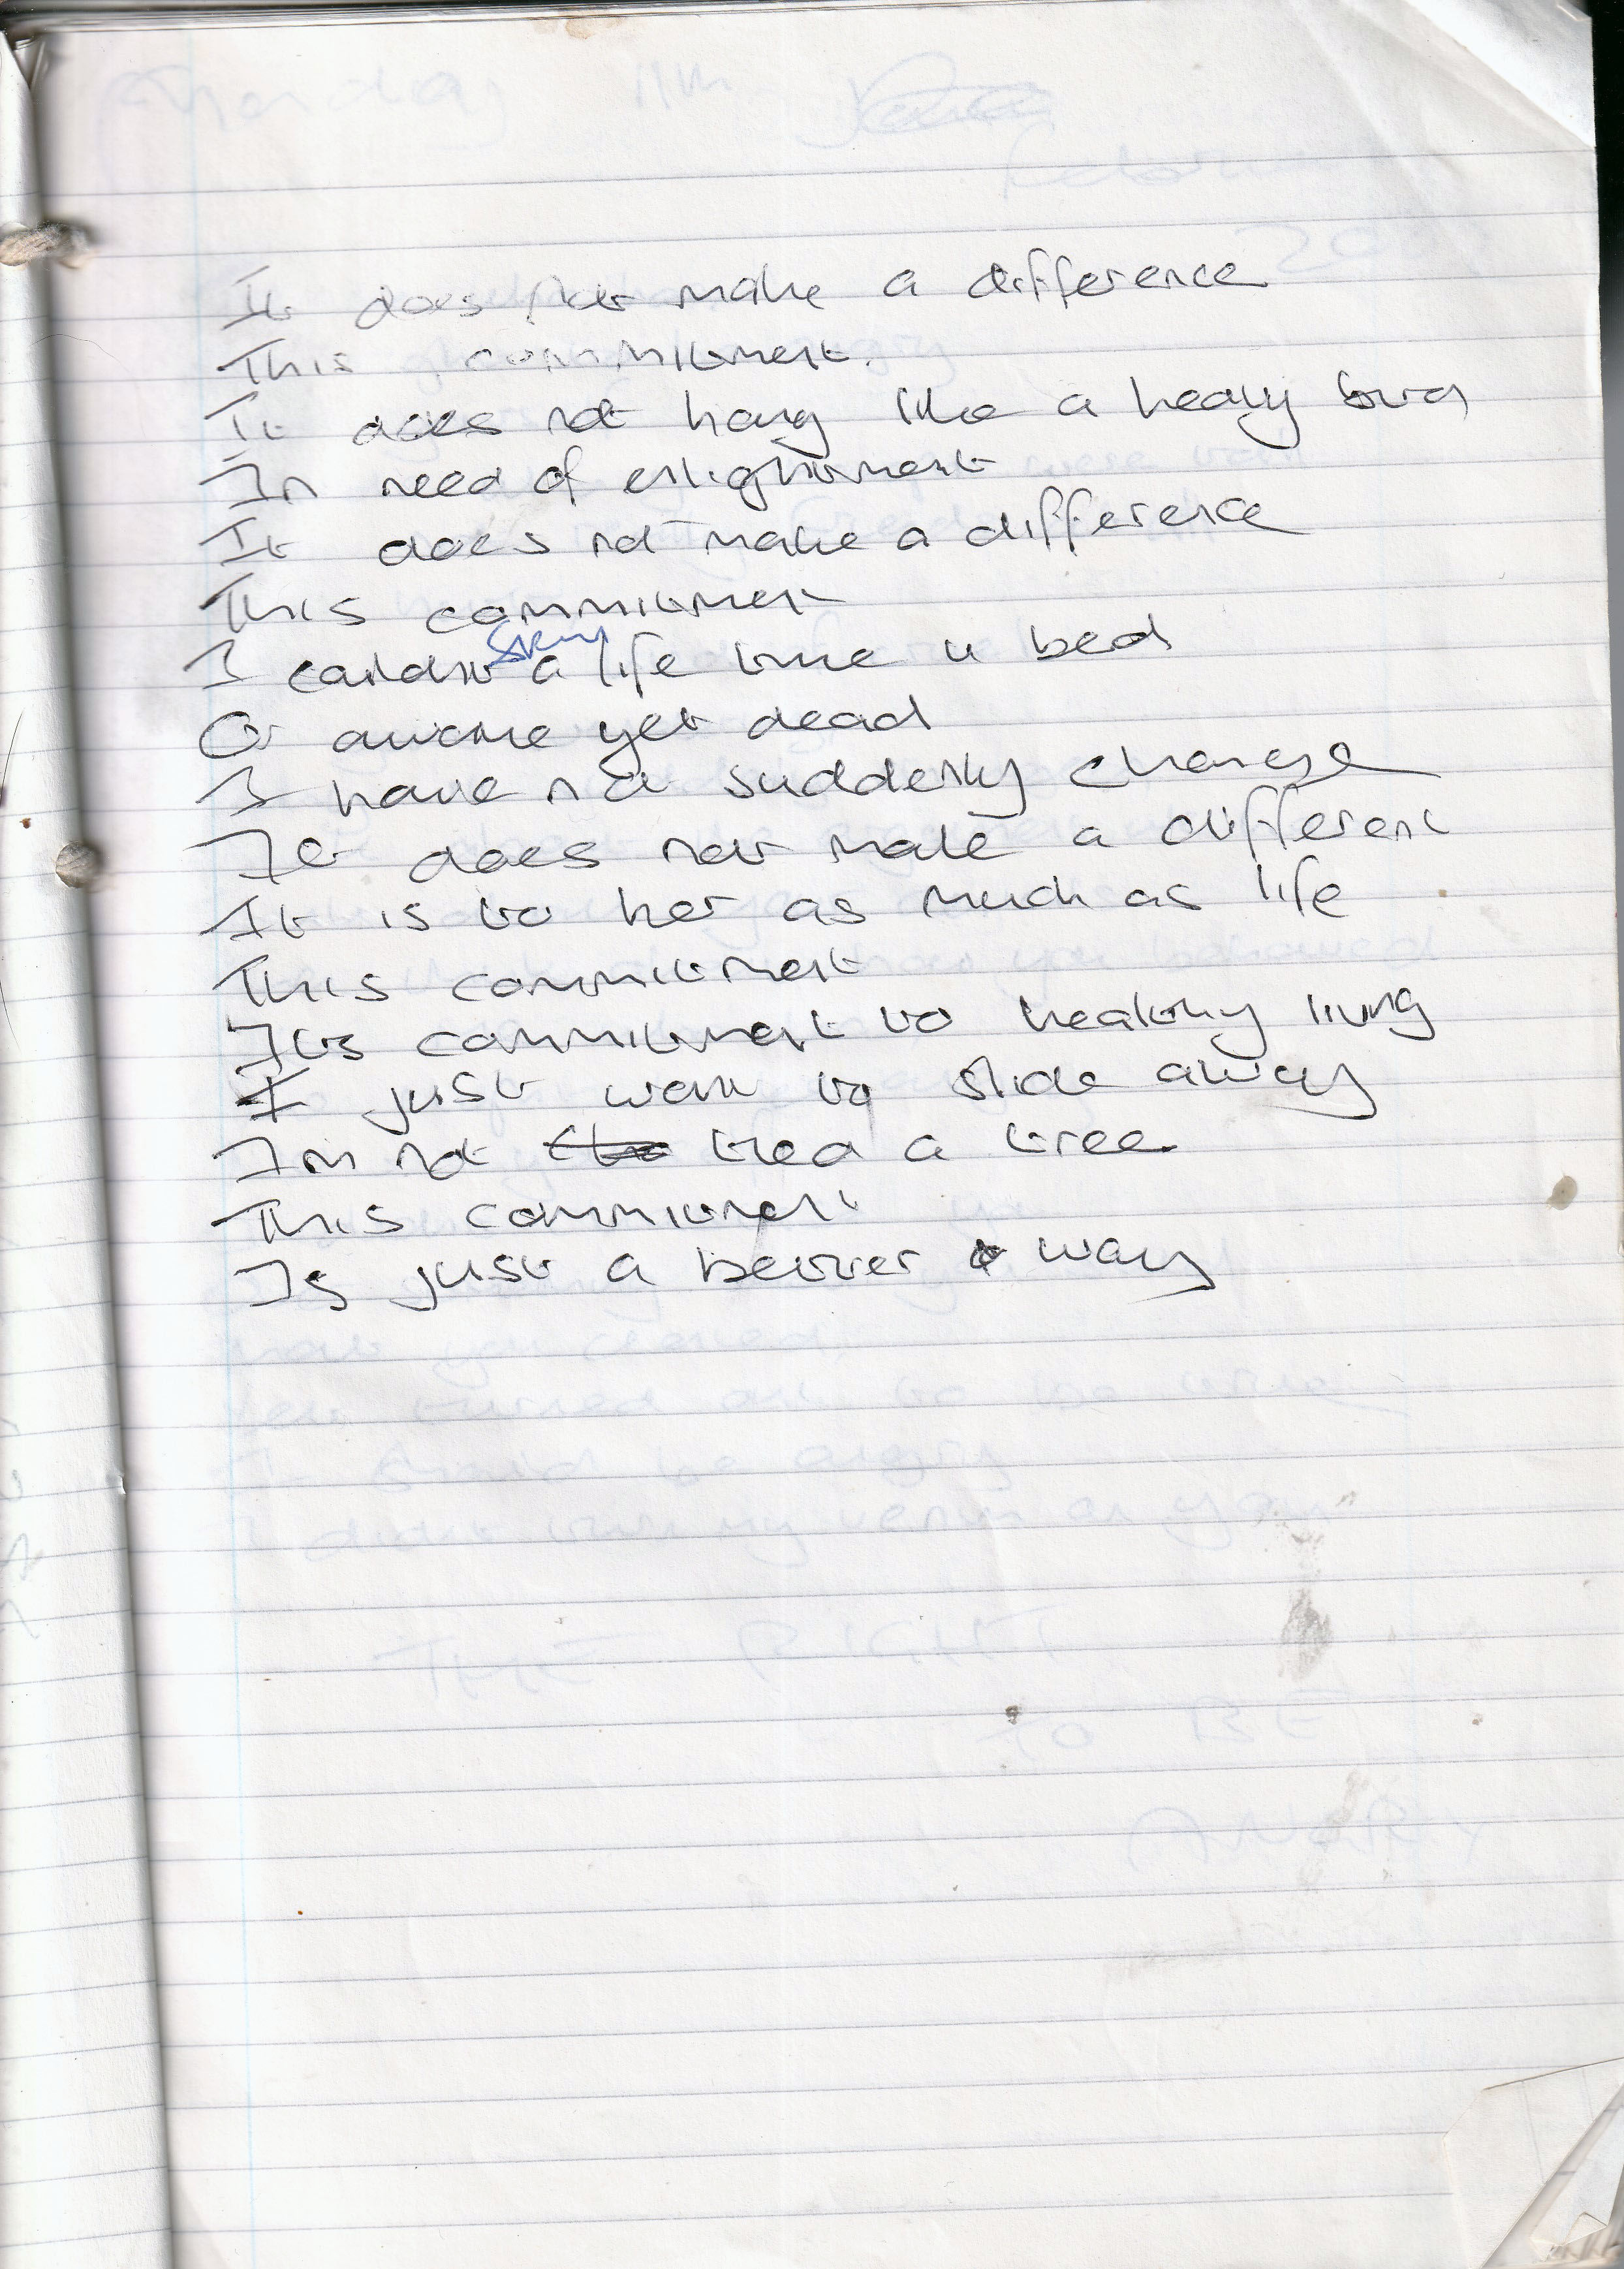 It does not make a difference
This commitment.
It does not hang like a heavy
In need of enlightment
It does not make a difference
This commitment
I couldnt stay a life time in bed
Or anyone yet dead
I have not suddenly change
It does not make a different
It is to her as much as life
This commitment
Its commitment to healthy living
I just want to slide away
Im not tied a tree
This commitment
Is just a better way